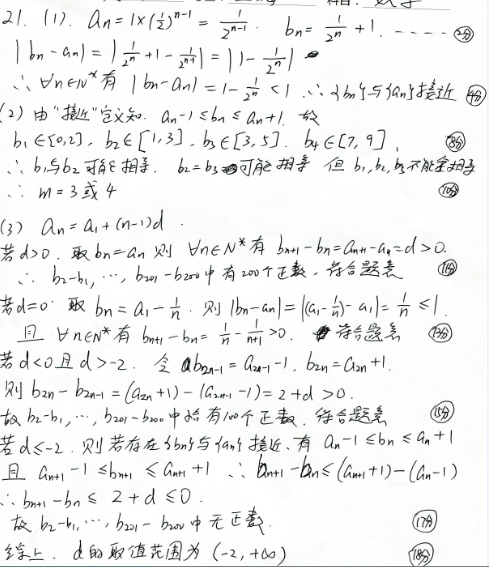 21. (1). aₙ = 1×(1/2)ⁿ⁻¹ = 1/2ⁿ⁻¹. bₙ = 1/2ⁿ + 1. ----- 2分
|bₙ - aₙ| = |1/2ⁿ + 1 - 1/2ⁿ⁻¹| = |1 - 1/2ⁿ|
∴ ∀n∈N* 有 |bₙ-aₙ| = 1 - 1/2ⁿ < 1 ∴ {bₙ}与{aₙ}接近 4分
(2) 由“接近”定义知. aₙ-1 ≤ bₙ ≤ aₙ+1. 故
b₁∈[0,2], b₂∈[1,3], b₃∈[3,5]. b₄∈[7,9]. 8分
∴ b₁与b₂可能相等. b₂=b₃可能相等 但b₁,b₂,b₃不能全相等
∴ m = 3或4 10分
(3) aₙ = a₁+(n-1)d.
若d>0. 取bₙ=aₙ 则 ∀n∈N* 有 bₙ₊₁-bₙ=aₙ₊₁-aₙ=d>0.
∴ b₂-b₁, …, b₂₀₁-b₂₀₀中有200个正数. 符合题意 11分
若d=0. 取 bₙ = a₁ - 1/n. 则 |bₙ-aₙ| = |(a₁-1/n)-a₁| = 1/n ≤ 1.
且 ∀n∈N* 有 bₙ₊₁-bₙ = 1/n - 1/(n+1) > 0. 符合题意 13分
若d<0且d>-2. 令 b₂ₙ₋₁ = a₂ₙ₋₁-1, b₂ₙ = a₂ₙ+1.
则 b₂ₙ - b₂ₙ₋₁ = (a₂ₙ+1) - (a₂ₙ₋₁-1) = 2+d > 0.
故 b₂-b₁, …, b₂₀₁-b₂₀₀中恰有100个正数. 符合题意 15分
若d≤-2. 则若存在{bₙ}与{aₙ}接近. 有 aₙ-1 ≤ bₙ ≤ aₙ+1
且 aₙ₊₁-1 ≤ bₙ₊₁ ≤ aₙ₊₁+1 ∴ bₙ₊₁-bₙ ≤ (aₙ₊₁+1)-(aₙ-1)
∴ bₙ₊₁-bₙ ≤ 2+d ≤ 0.
故 b₂-b₁, …, b₂₀₁-b₂₀₀中无正数. 17分
综上. d的取值范围为 (-2,+∞) 18分